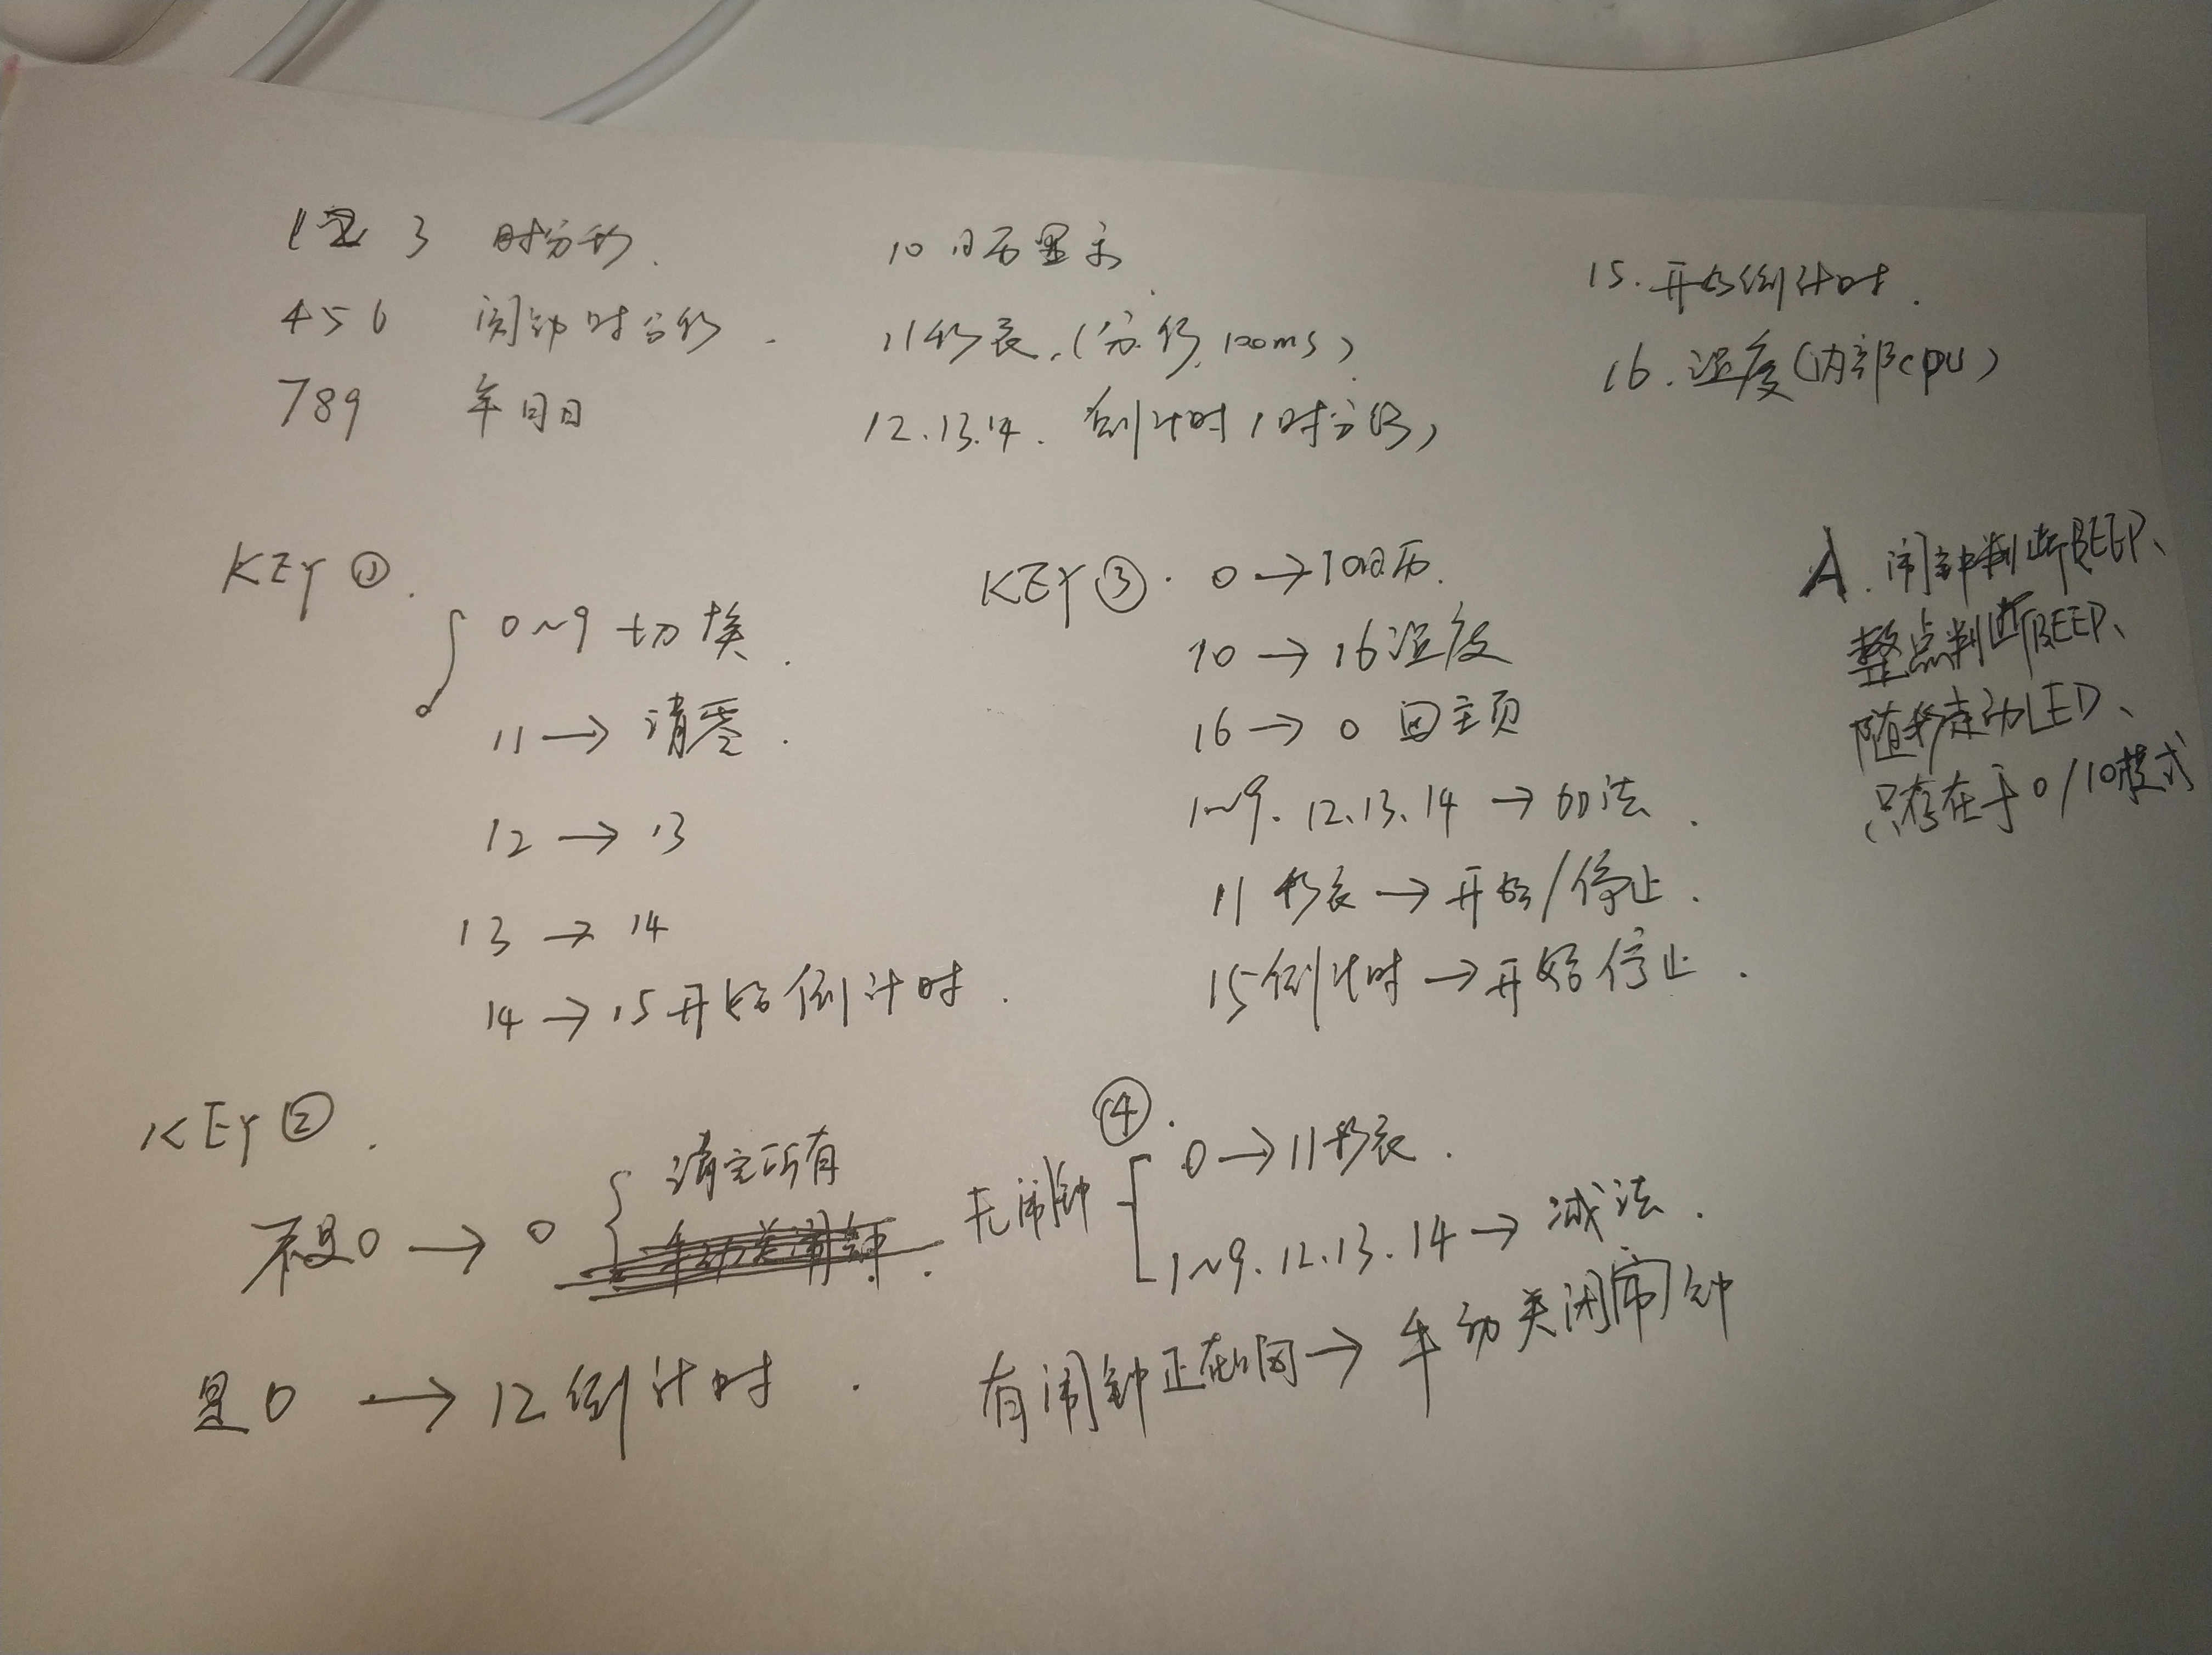 1 2 3 时分秒.
4 5 6 闹钟时分秒.
7 8 9 年月日
10 日历显示.
11 秒表.(分.秒.100ms)
12.13.14. 倒计时(时分秒)
15.开始倒计时.
16.温度(内部cpu)
KEY①.
0~9 切换.
11 → 清零.
12 → 13
13 → 14
14 → 15开始倒计时.
KEY③. 0 → 10日历.
10 → 16温度
16 → 0 回主页
1~9. 12.13、14 → 加法.
11 秒表 → 开始/停止.
15倒计时 → 开始停止.
A.闹钟判断BEEP、
整点判断BEEP、
随秒走动LED、
只存在于0/10模式
KEY②.
不是0 → 0 清完所有
是0 → 12倒计时.
④.
无闹钟
0 → 11秒表.
1~9.12.13.14 → 减法.
有闹钟正在响 → 手动关闭闹钟